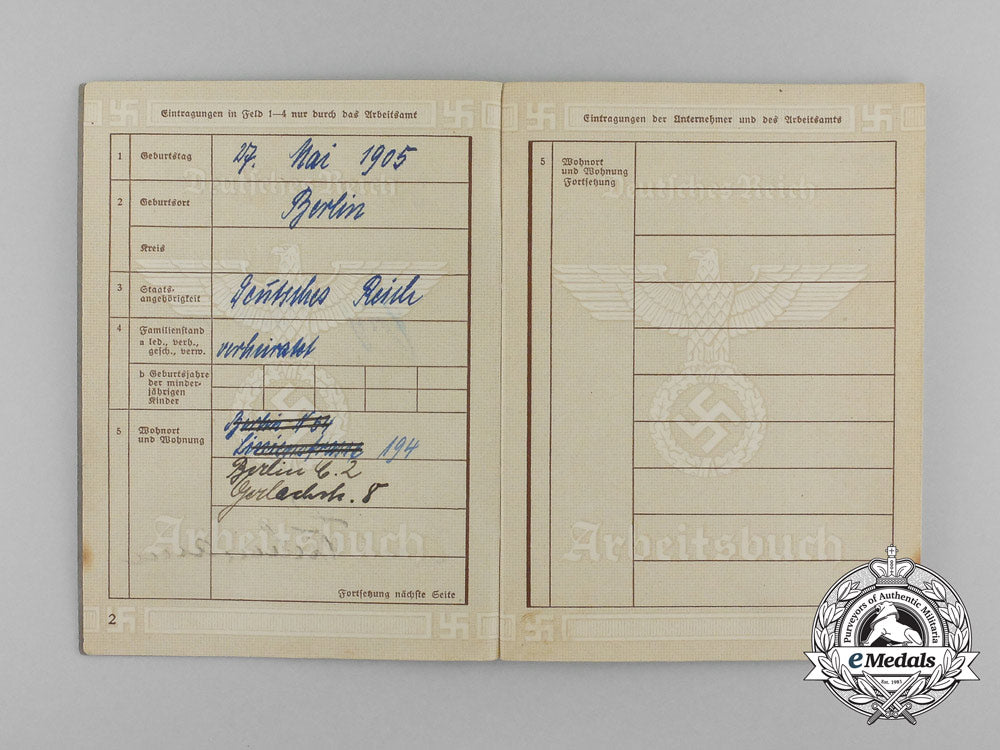 Eintragungen in Feld 1—4 nur durch das Arbeitsamt
1 Geburtstag 27. Mai 1905
Deutsches Reich
2 Geburtsort Berlin
Kreis
3 Staats-
angehörigkeit Deutsches Reich
4 Familienstand
a led., verh.,
gesch., verw. verheiratet
b Geburtsjahre
der minder-
jährigen
Kinder
5 Wohnort
und Wohnung
Berlin N 54
Linienstrasse 194
Berlin C. 2
Gerlachstr. 8
Arbeitsbuch
Fortsetzung nächste Seite
2
Eintragungen der Unternehmer und des Arbeitsamts
5 Wohnort
und Wohnung
Fortsetzung
Deutsches Reich
Arbeitsbuch
Purveyors of Authentic Militaria
eMedals
Est. 1985